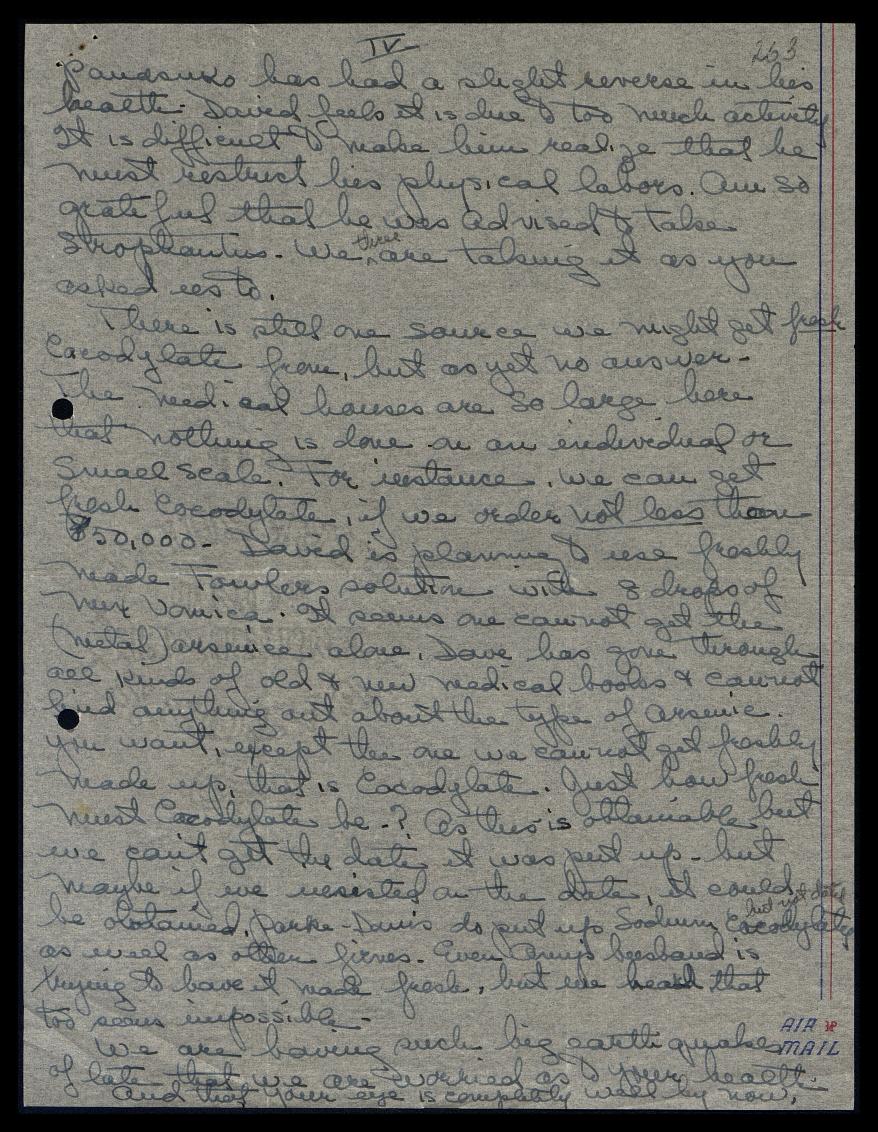 IV
253
has had a slight reverse in his
health. David feels it is due to too much activity
It is difficult to make him realize that he
must restrict his physical labors. Am so
grateful that he was advised to take
Strophantus. We three are taking it as you
asked us to.
There is still one source we might get fresh
Cacodylate from, but as yet no answer -
The medical houses are so large here
that nothing is done on an individual or
Small scale. For instance, we can get
fresh Cocodylate, if we order not less than
$50,000 - David is planning to use freshly
made Fowlers solution with 8 drops of
nux Vomica. It seems one cannot get the
(metal) arsenice alone. Dave has gone through
all kinds of old & new medical books & cannot
find anything out about the type of arsenic.
you want, except the one we cannot get freshly
made up, that is Cacodylate. Just how fresh
must Cacodylate be -? As this is obtainable but
we can't get the date it was put up - but
maybe if we insisted on the date, it could
but not dated
be obtained, Parke-Davis do put up Sodium Cocodylate
as well as other firms. Even Amy's husband is
trying to have it made fresh, but we heard that
too seems impossible -
We are having such big earth quakes
of late that we are worried as to your health.
And that your eye is completely well by now.
AIR
MAIL